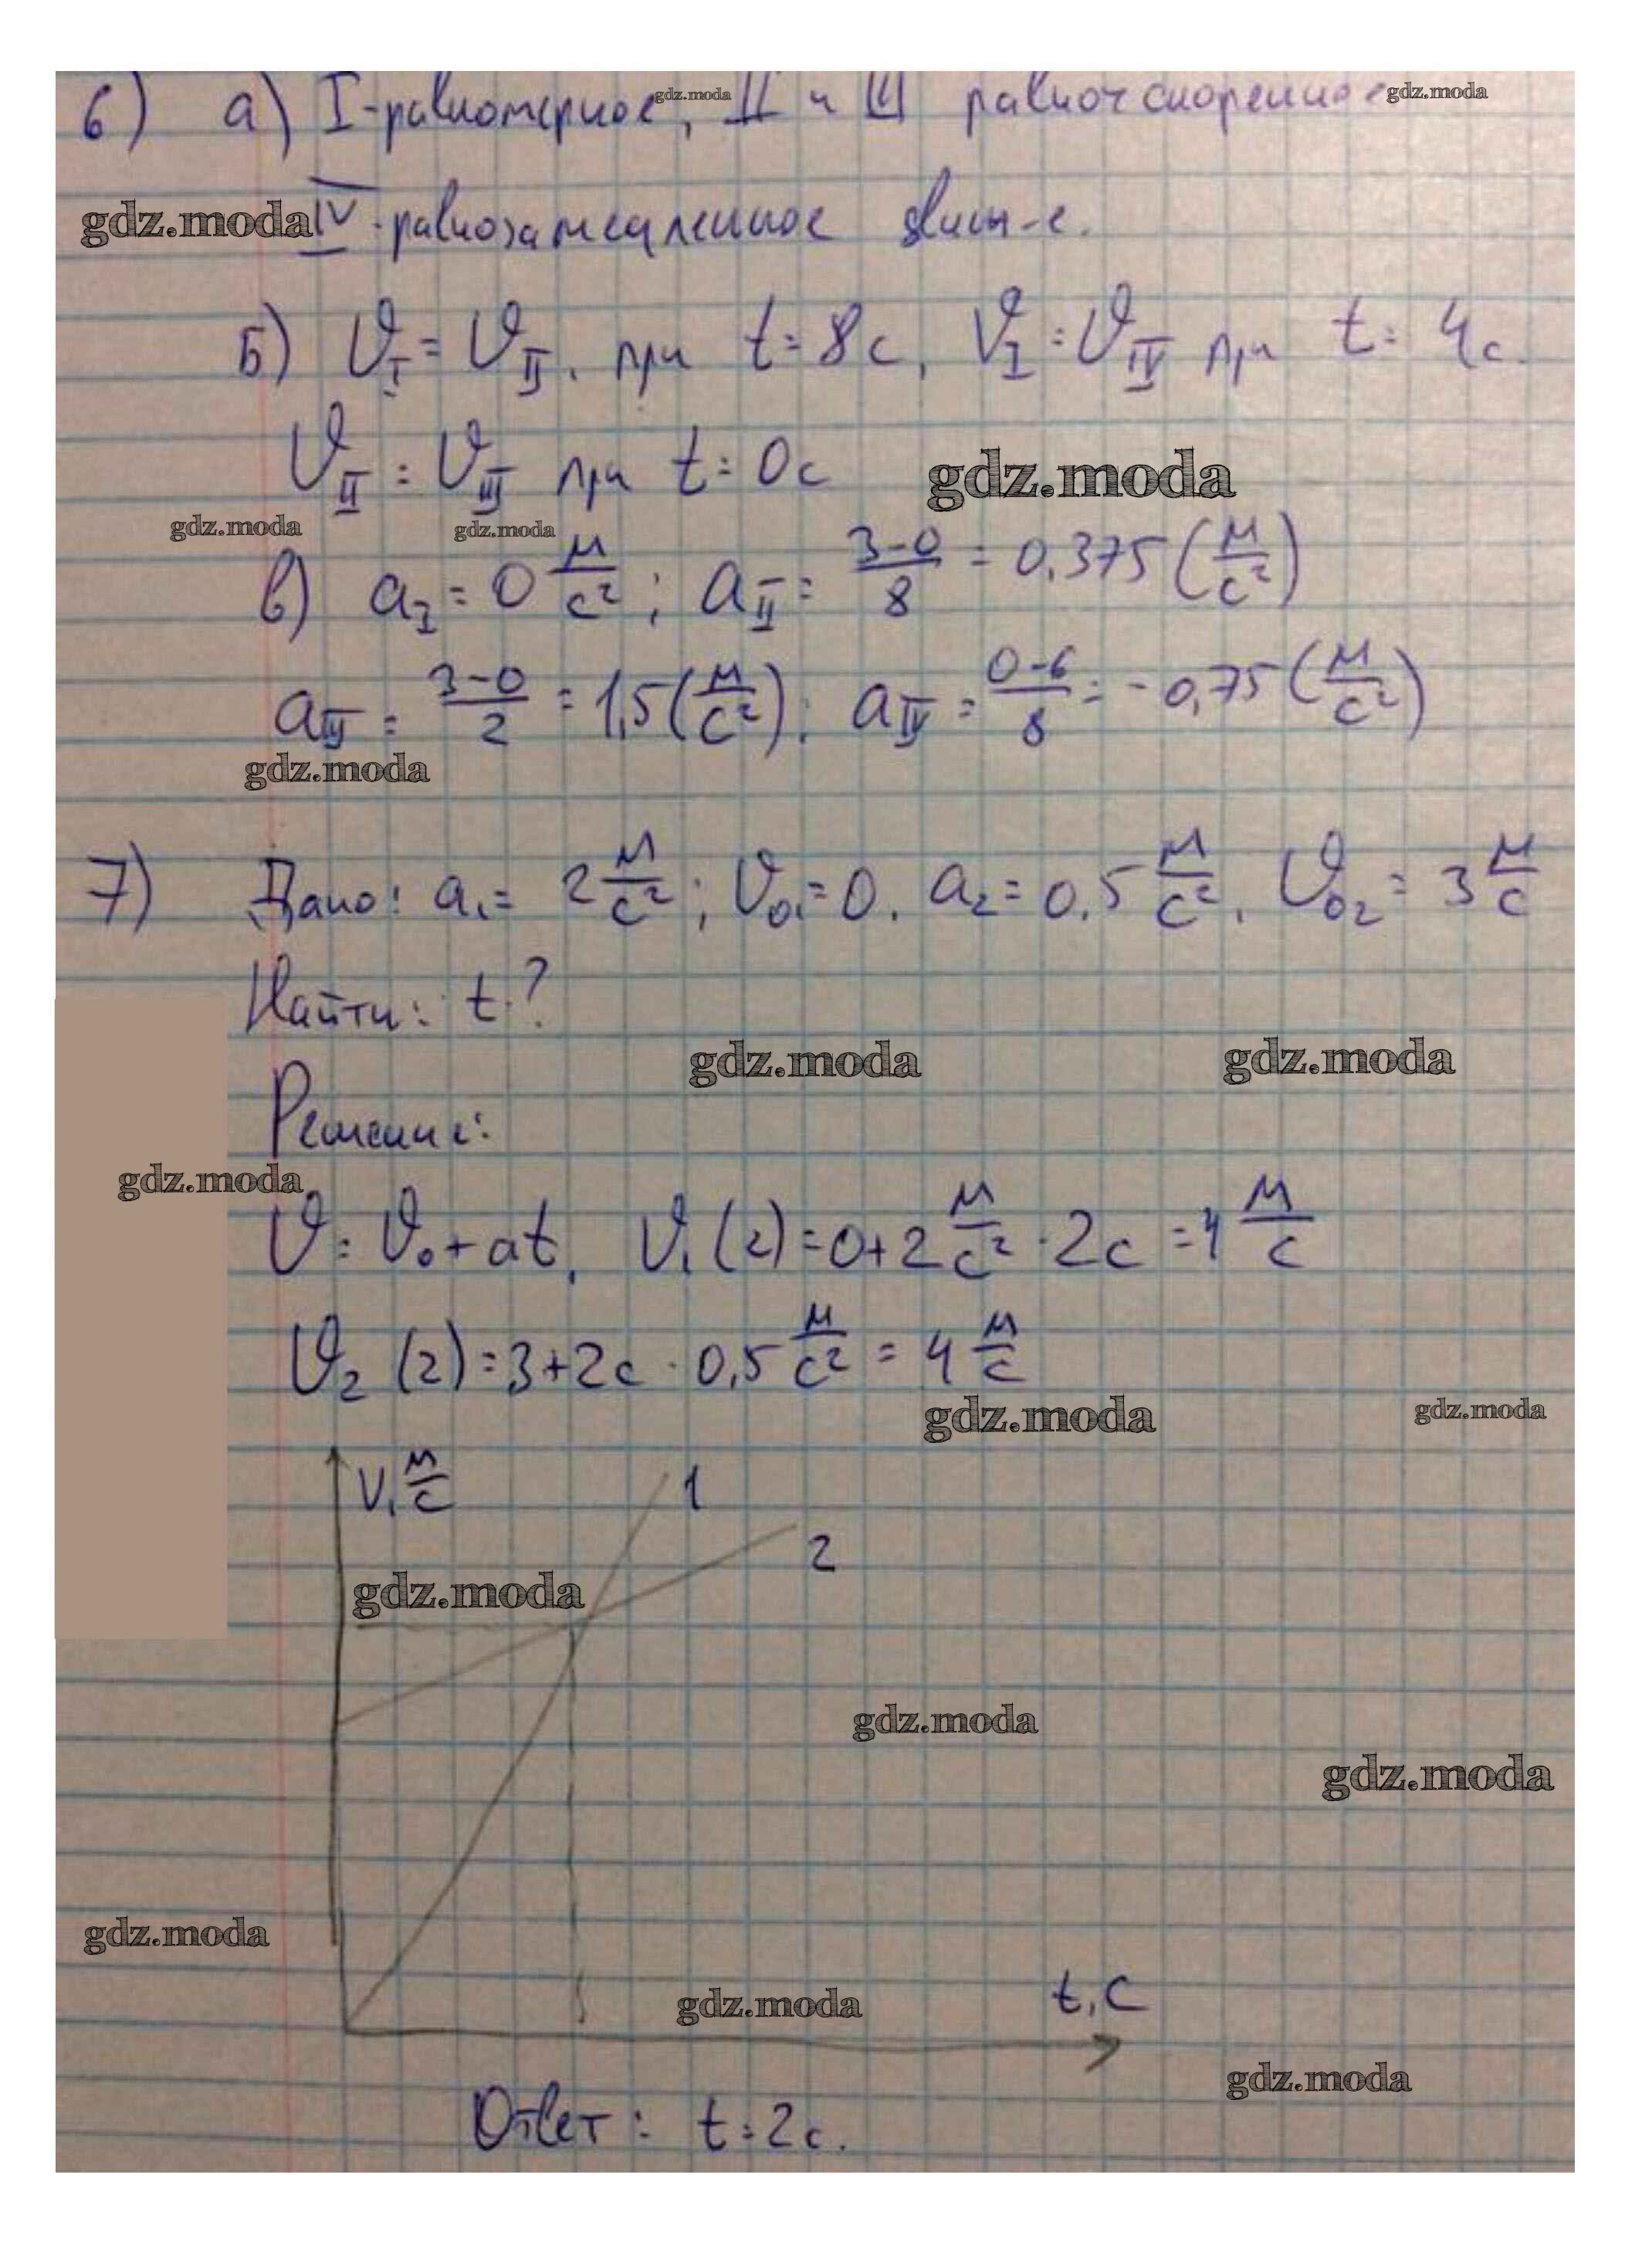 6) а) I-равномерное, II и III равноускоренное
gdz.moda
gdz.moda
gdz.moda
IV-равнозамедленное движ-е.
Б) V_I = V_II. при t=8с, V_I=V_IV при t=4с.
V_II = V_III при t=0с
gdz.moda
gdz.moda
gdz.moda
в) a_I = 0 м/с²; a_II = (3-0)/8 = 0,375 (м/с²)
a_III = (3-0)/2 = 1,5 (м/с²); a_IV = (0-6)/8 = -0,75 (м/с²)
gdz.moda
7) Дано: a₁= 2 м/с²; V₀₁=0. a₂=0,5 м/с², V₀₂ = 3 м/с
Найти: t-?
gdz.moda
gdz.moda
Решение:
gdz.moda
V = V₀+at, V₁(2)=0+2 м/с² · 2с = 4 м/с
V₂ (2)=3+2с · 0,5 м/с² = 4 м/с
gdz.moda
gdz.moda
V, м/с
1
2
gdz.moda
gdz.moda
gdz.moda
gdz.moda
gdz.moda
t, с
gdz.moda
Ответ: t=2с.